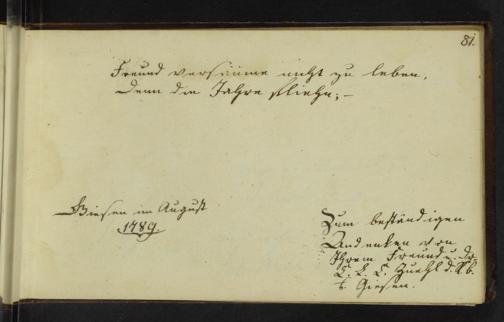 81.
Freund versäume nicht zu leben,
Denn die Jahre fliehn; –
Giesen im August
1789
Zum beständigen
Andenken von
Ihrem Freund u. Dr
d. G. b.
Giesen.